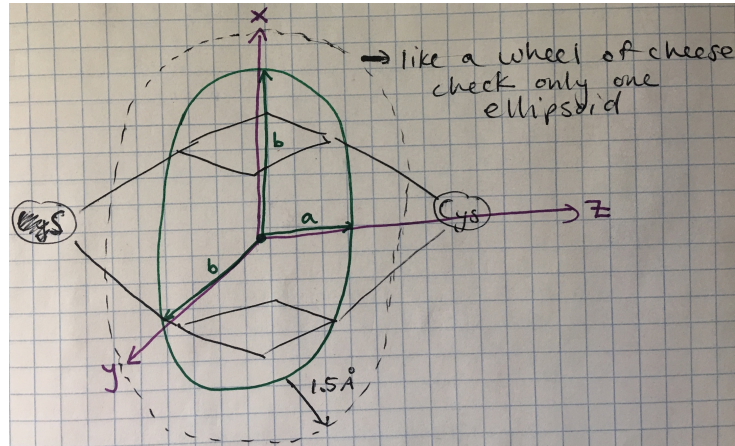 x
→ like a wheel of cheese
check only one
ellipsoid
b
a
Cys
z
b
y
1.5Å